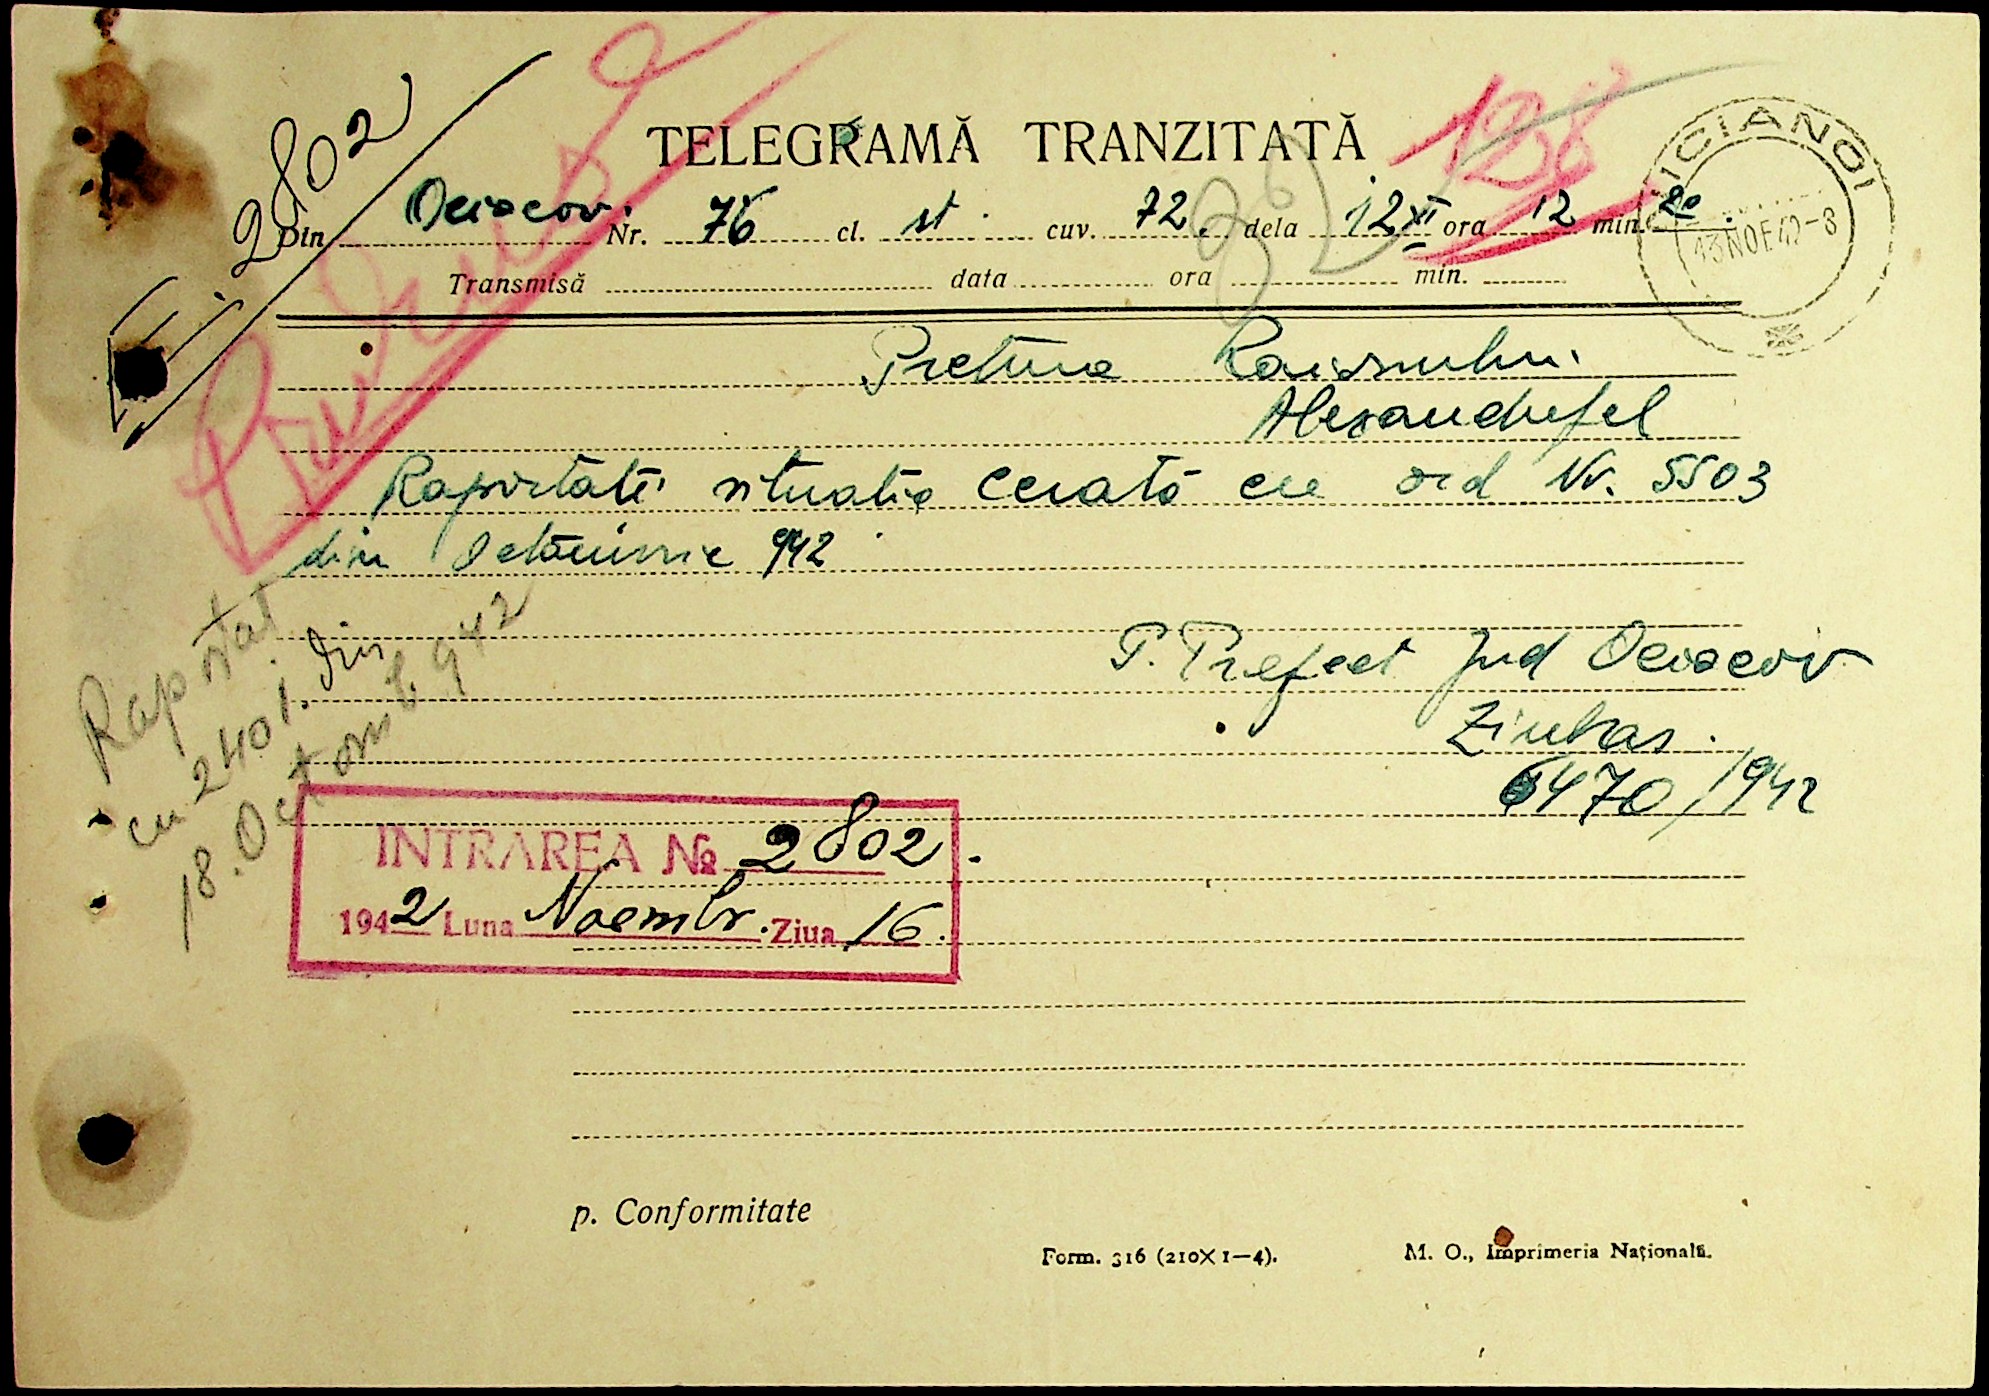 E. 2802
128
TELEGRAMĂ TRANZITATĂ
Din Ociacov. Nr. 76 cl. st. cuv. 72 dela 12 XI ora 12 min. 20
Transmisă data ora min.
UCIANOI
13 NOE 42-8
Pretura Raionului
Alexandrfel
Raportati situatia cerată cu ord Nr. 5503
din Octombrie 942
Raportat
cu 2401. din
18. Octomb. 942
P. Prefect Jud Ociacov
6470/942
INTRAREA № 2802.
1942 Luna Noembr. Ziua 16.
p. Conformitate
Form. 316 (210X1—4). M. O., Imprimeria Națională.